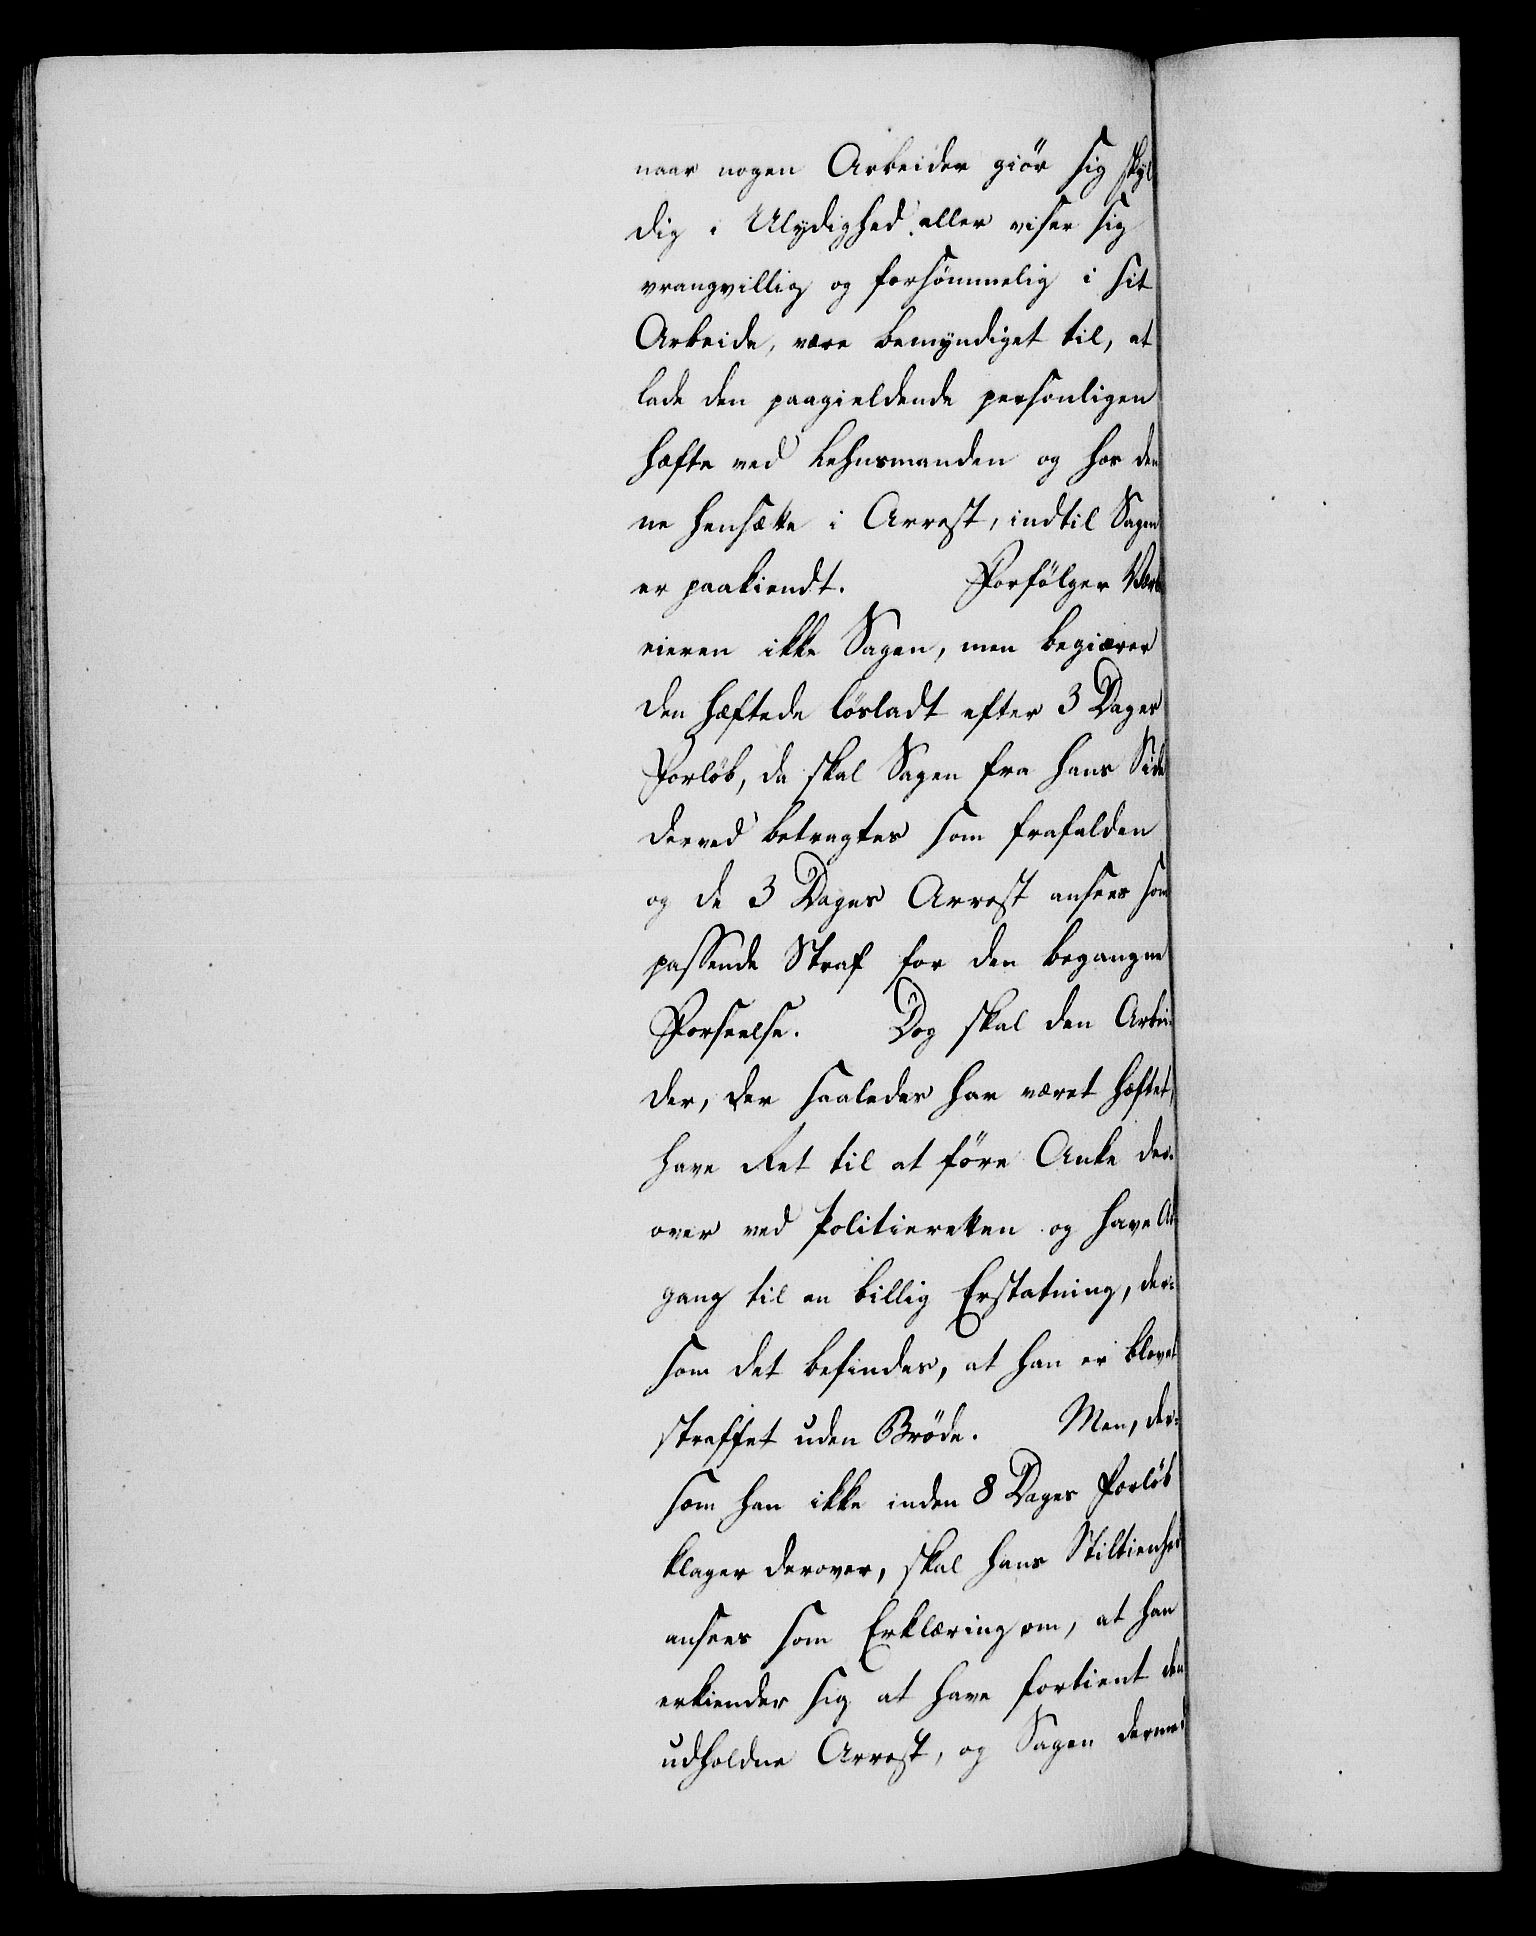 naar nogen Arbeider giör sig skyl
dig i Ulydighed eller viser sig
vrangvillig og forsömmelig i sit
Arbeide, være bemyndiget til, at
lade den paagieldende personligen
hæfte ved Lehnsmanden og hos den
ne hensætte i Arrest, indtil Sagen
er paakiendt. Forfölger Værk
eieren ikke Sagen, men begiærer
den hæftede lösladt efter 3 Dages
Forlöb, da skal Sagen fra hans Side
derved betragtes som frafalden
og de 3 Dages Arrest ansees som
passende Straf for den begangne
Forseelse. Dog skal den Arbei
der, der saaledes har været hæftet,
have Ret til at före Anke der-
over ved Politieretten og have Ad
gang til en billig Erstatning, der-
som det befindes, at han er blevet
straffet uden Bröde. Men, der-
som han ikke inden 8 Dages Forlöb
klager derover, skal hans Stiltienhed
ansees som Erklæring om, at han
erkiender sig at have fortient den
udholdne Arrest, og Sagen dermed